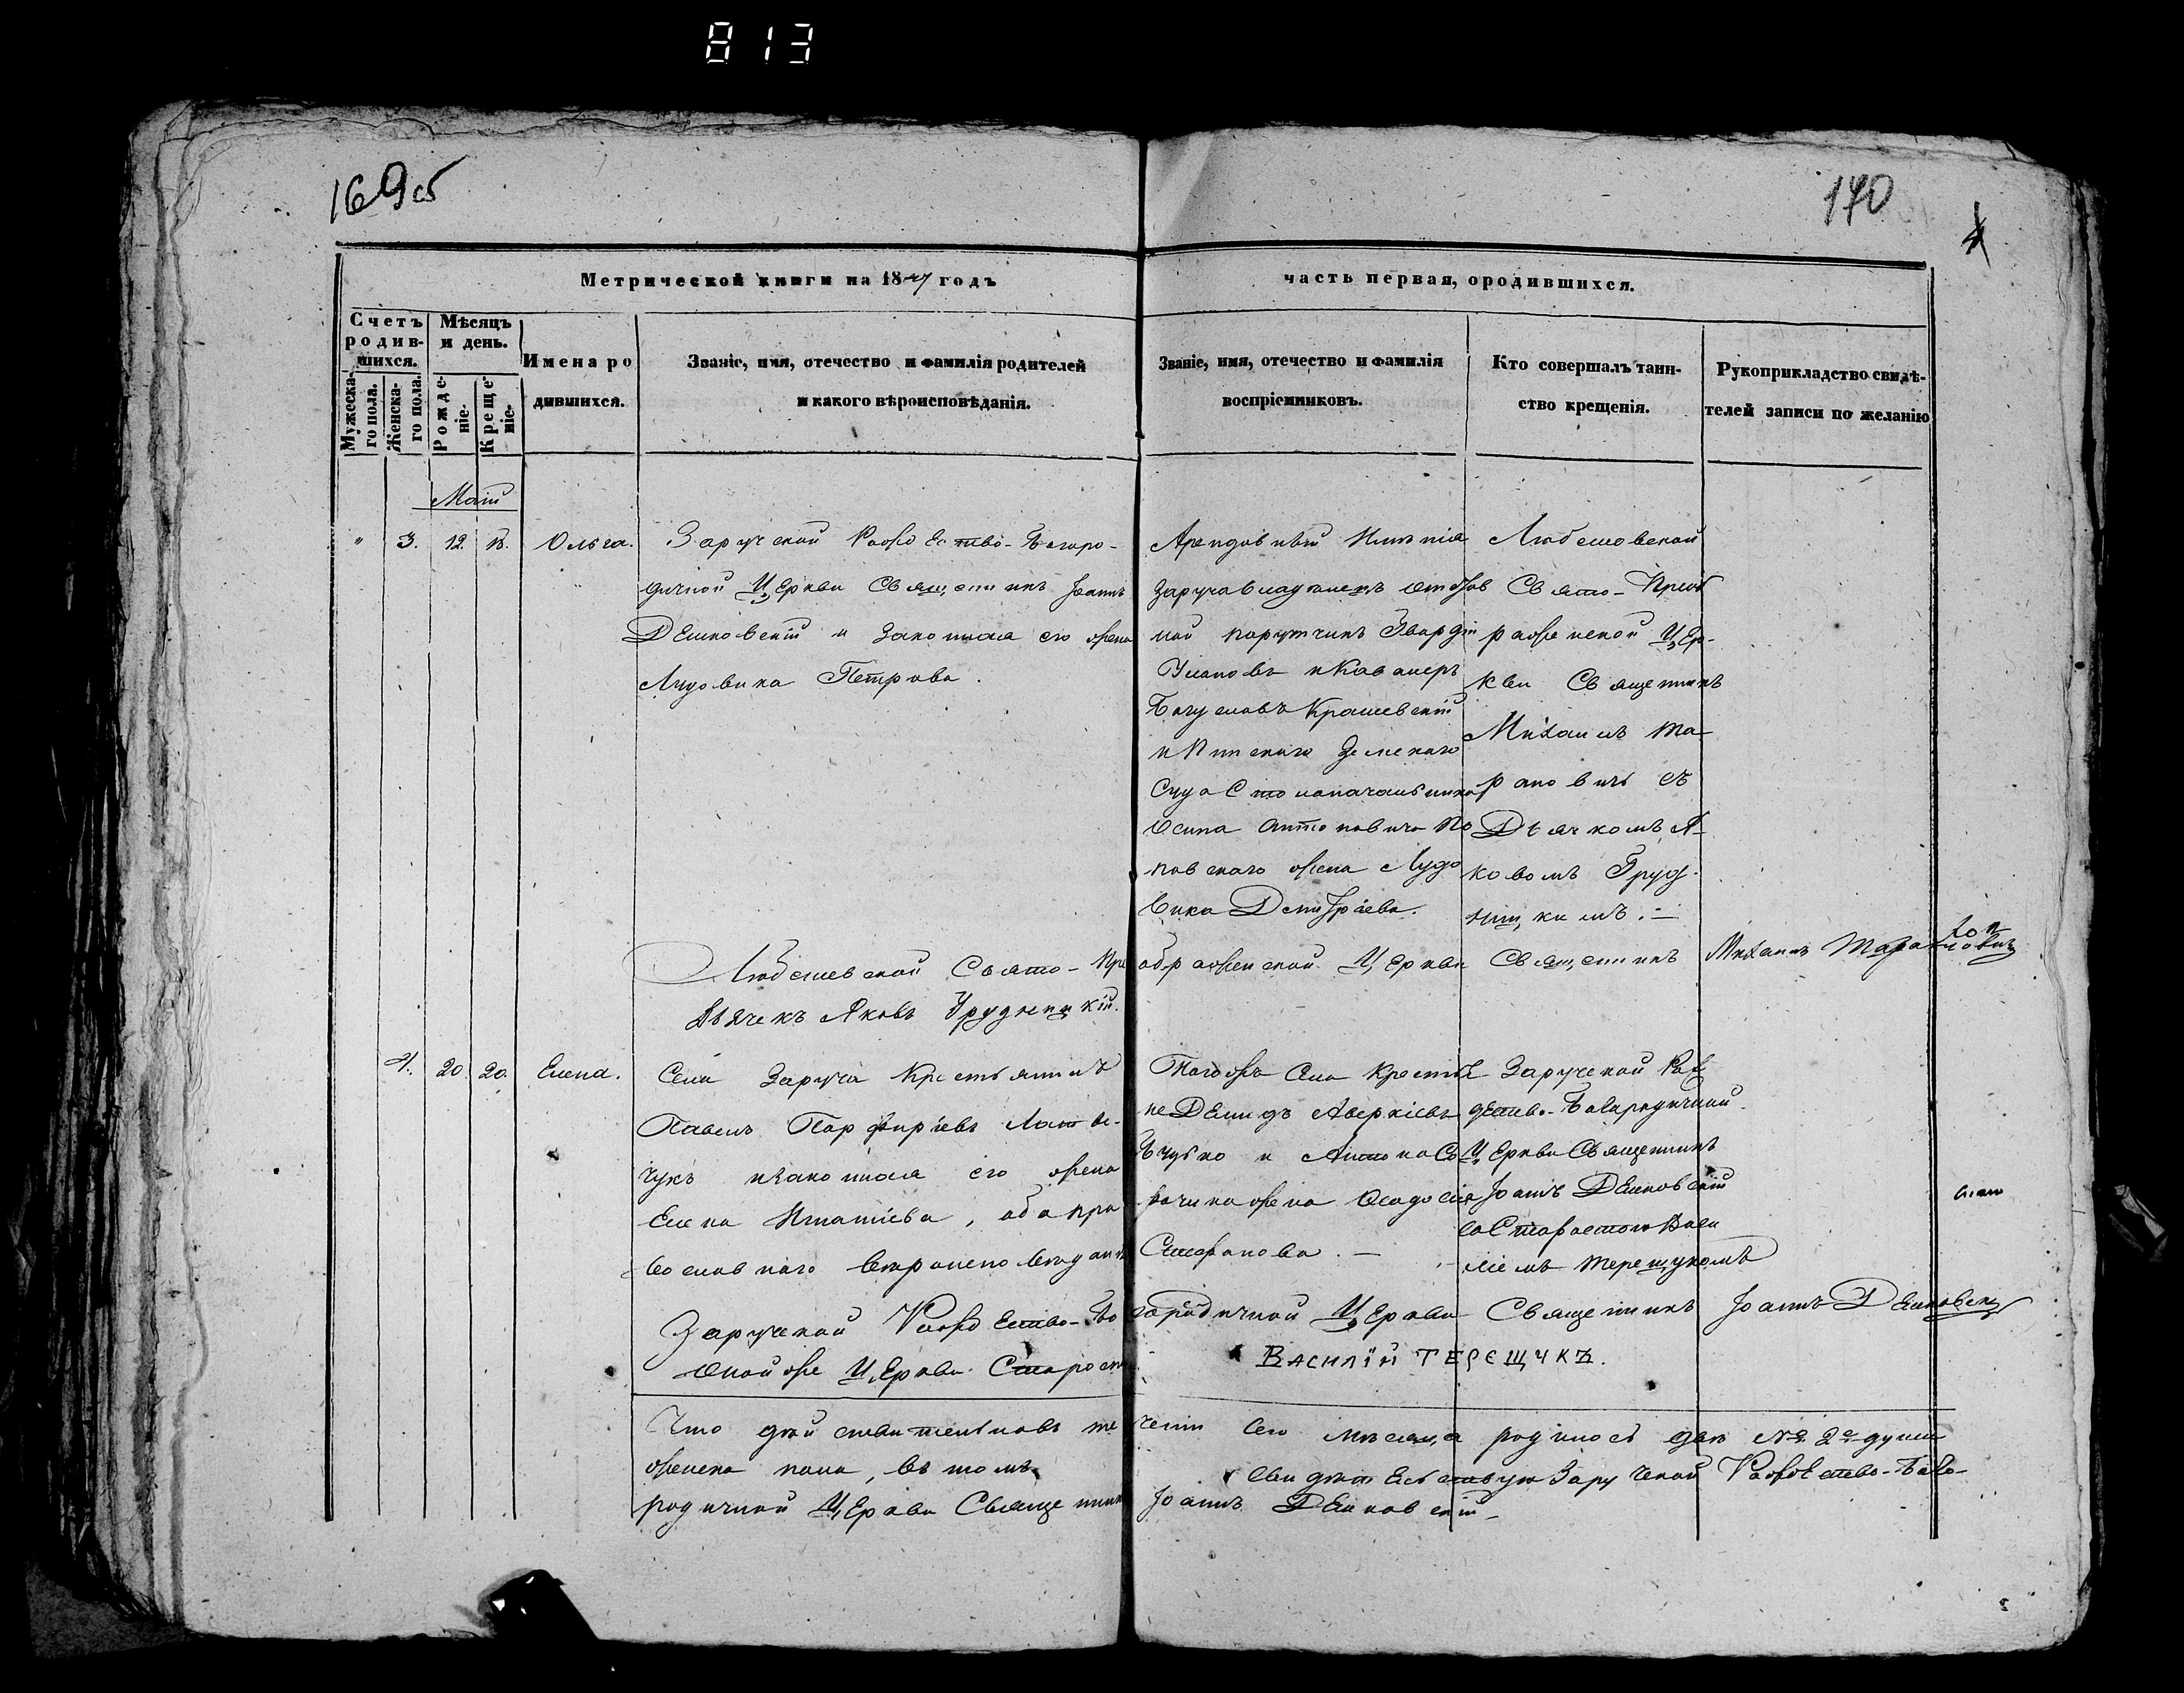 813
169об
170
Метрической книги на 1847 годъ
часть первая, ородившихся.
Счетъ родив-шихся.
Мѣсяцъ и день.
Мужеска-го пола.
Женска-го пола.
Рожде-ніе.
Креще-ніе.
Имена ро
дившихся.
Званіе, имя, отечество и фамилія родителей
и какого вѣроисповѣданія.
Званіе, имя, отечество и фамилія
воспріемниковъ.
Кто совершалъ таин-
ство крещенія.
Рукоприкладство свидѣ-
телей записи по желанію
Маій
" 3. 12. Ольга.
Заручской Рождество-Богоро-
дичной Церкви Священникъ Іоаннъ
Демковскій и Законная его жена
Людовика Петрова.
Арендовный Имѣнія
Заруча владѣлецъ
ной порутчикъ Гвардіи
Улановъ и Кавалеръ
Богуславъ Крашевскій
и Пинскаго Земскаго
Суда Столоначальника
Осипа Антоновича По
повскаго жена Лудо
вика
Любешовской
Свято-Преоб
раженской Цер-
кви Священникъ
Михаилъ Та-
рановичъ съ
Дьячкомъ Я-
ковомъ Груд-
ницкимъ.
Любешевской Свято-Преображенской Церкви Священникъ Михаилъ Тарановичъ
Дьячекъ Яковъ Грудницкій.
4. 20. 20. Елена.
Села Заруча Крестьянинъ
Павелъ Порфиріевъ
чукъ и Законная его жена
Елена Игнатіева, оба пра
вославнаго
Тогожъ Села Крестья
не Демидъ Аверкіевъ
и Антона
жена Феодосія
Стефанова.
Заручской Рож
дество-Богородичной
Церкви Священникъ
Іоаннъ Демковскій
со Старостою Васи
ліемъ Терещукомъ
Заручской Рождество-Богородичной Церкви Священникъ Іоаннъ Демковскій
Оной же Церкви Староста
Василій Терещукъ.
Что дѣйствительно въ теченіи Сего мѣсяца родилось двѣ № 2й души
женска пола, въ томъ свидѣтельствую Заручской Рождество-Бого-
родичной Церкви Священникъ Іоаннъ Демковскій